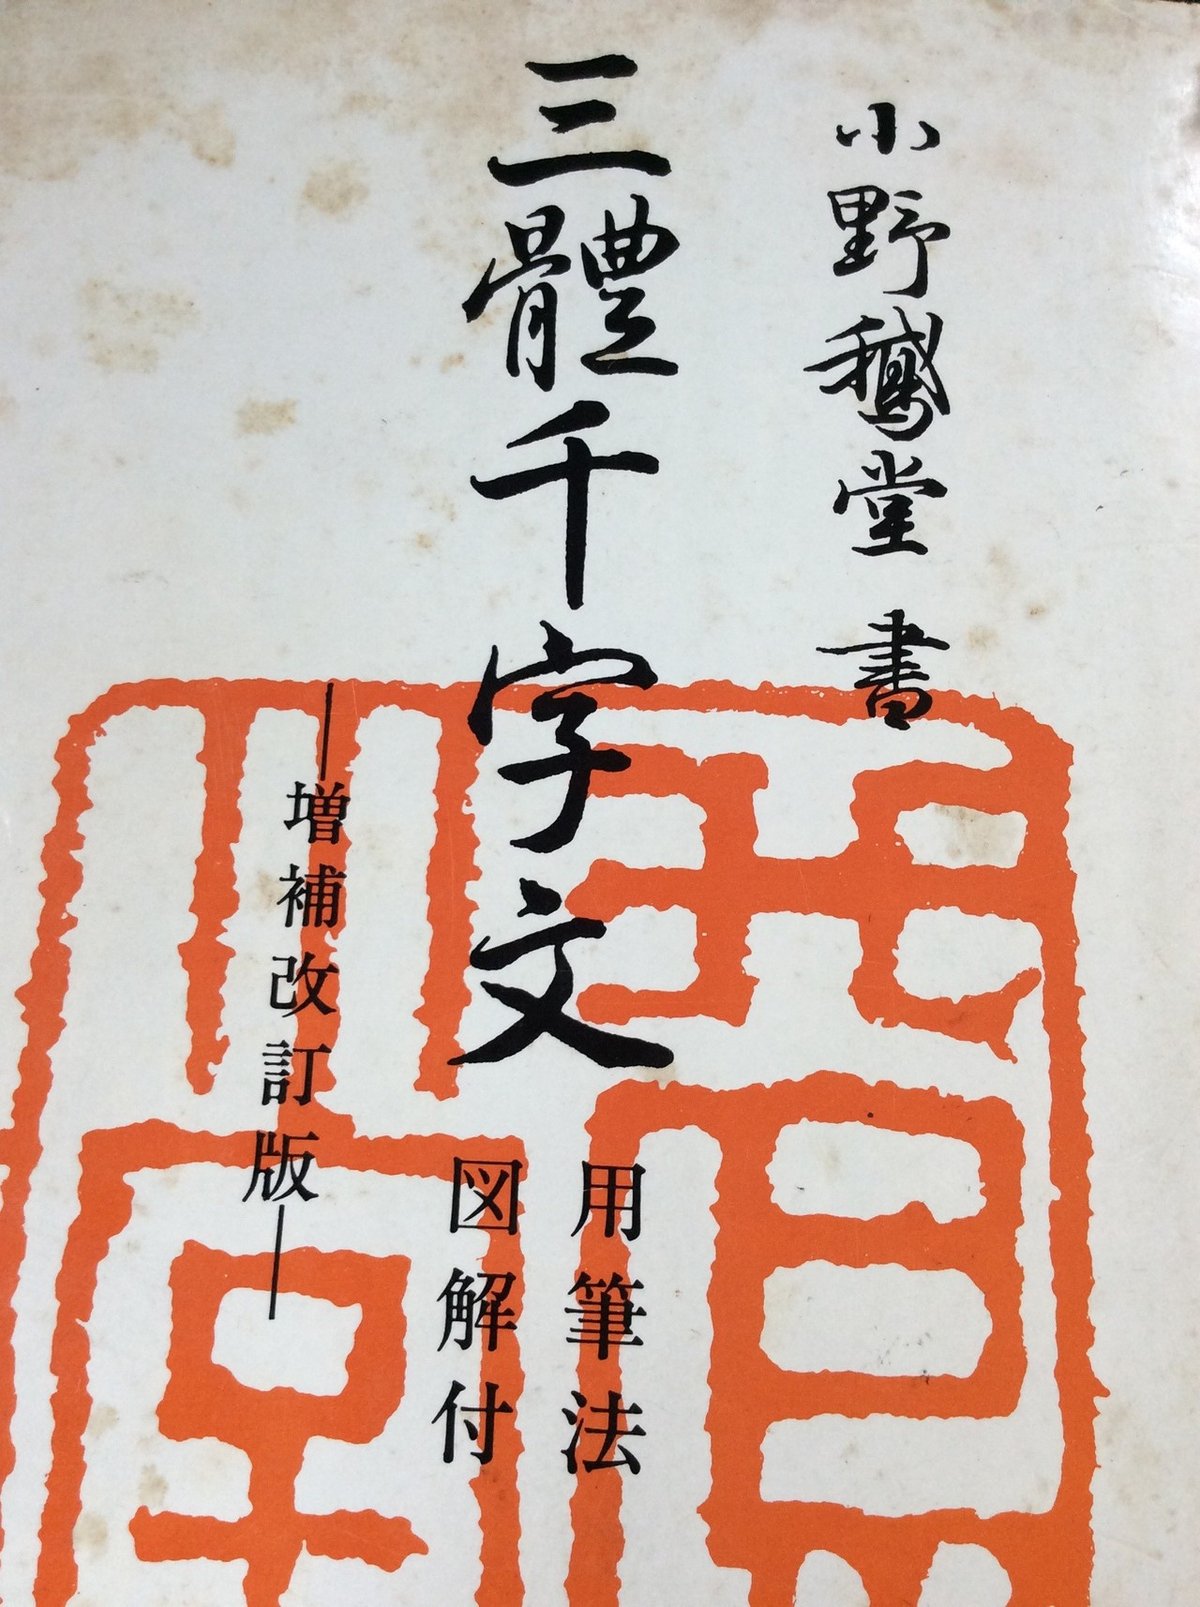 小野鵞堂 書
三體千字文
用筆法
図解付
―増補改訂版―